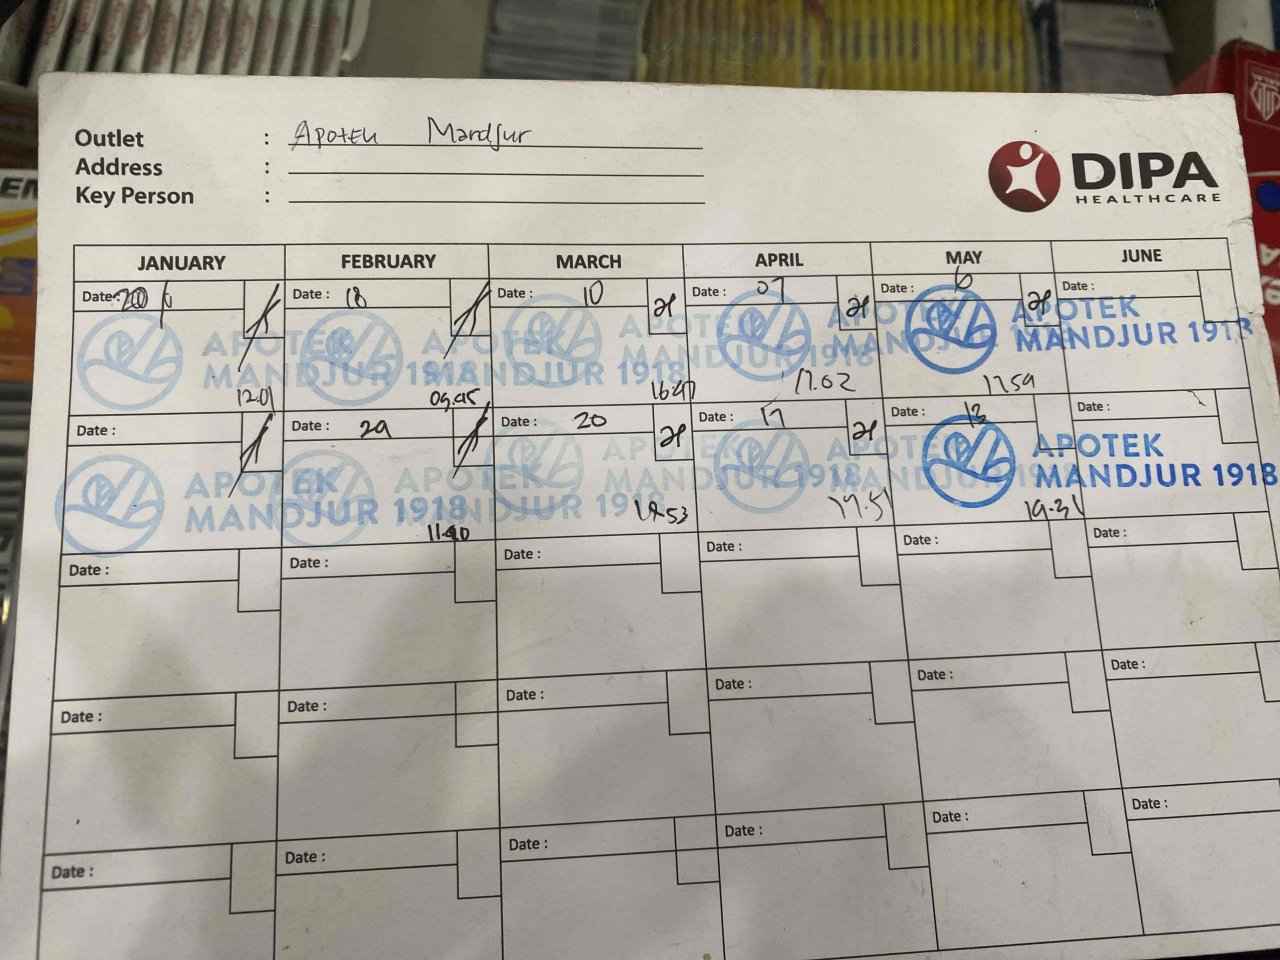 Outlet : Apotek Mandjur
Address :
Key Person :
DIPA
HEALTHCARE
JANUARY FEBRUARY MARCH APRIL MAY JUNE
Date: Date : 18 Date : 10 Date : 07 Date : 6 Date :
APOTEK MANDJUR 1918
APOTEK MANDJUR 1918
APOTEK MANDJUR 1918
APOTEK MANDJUR 1918
APOTEK
MANDJUR 1918
12.01 09.45 16.47 17.02 17.59
Date : Date : 29 Date : 20 Date : 17 Date : 13 Date :
APOTEK MANDJUR 1918
APOTEK MANDJUR 1918
APOTEK MANDJUR 1918
APOTEK MANDJUR 1918
APOTEK
MANDJUR 1918
11.40 19.53 17.51 19.31
Date : Date : Date : Date : Date : Date :
Date : Date : Date : Date : Date : Date :
Date : Date : Date : Date : Date : Date :